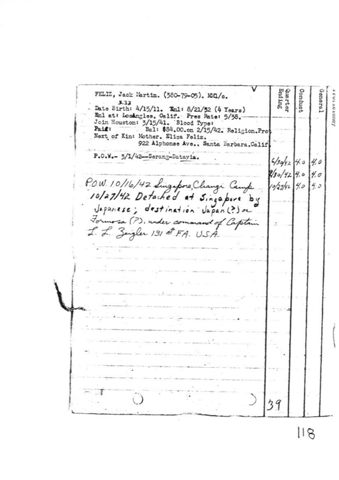 FELIZ, Jack Martin. (380-79-05). MM1/c.
Date Birth: 4/15/11. Enl: 8/21/32 (4 Years)
Enl at: LosAngles, Calif. Pres Rate: 5/38.
Join Houston: 3/15/41. Blood Type:
Paid: Bal: $84.00.on 2/15/42. Religion.Prot
Next of Kin: Mother. Elisa Feliz.
922 Alphonse Ave., Santa Barbara, Calif
P.O.W.- 3/1/42 -Serang-Batavia.
POW 10/16/42 Singapore, Changi Camp
10/27/42 Detached at Singapore by
Japanese; destination Japan (?) or
Formosa (?), under command of Captain
L. L. Zeigler 131 st F.A. U.S.A.
Quarter Ending
Conduct
General
6/30/42 4.0 4.0
9/30/42 4.0 4.0
10/27/42 4.0 4.0
39
118